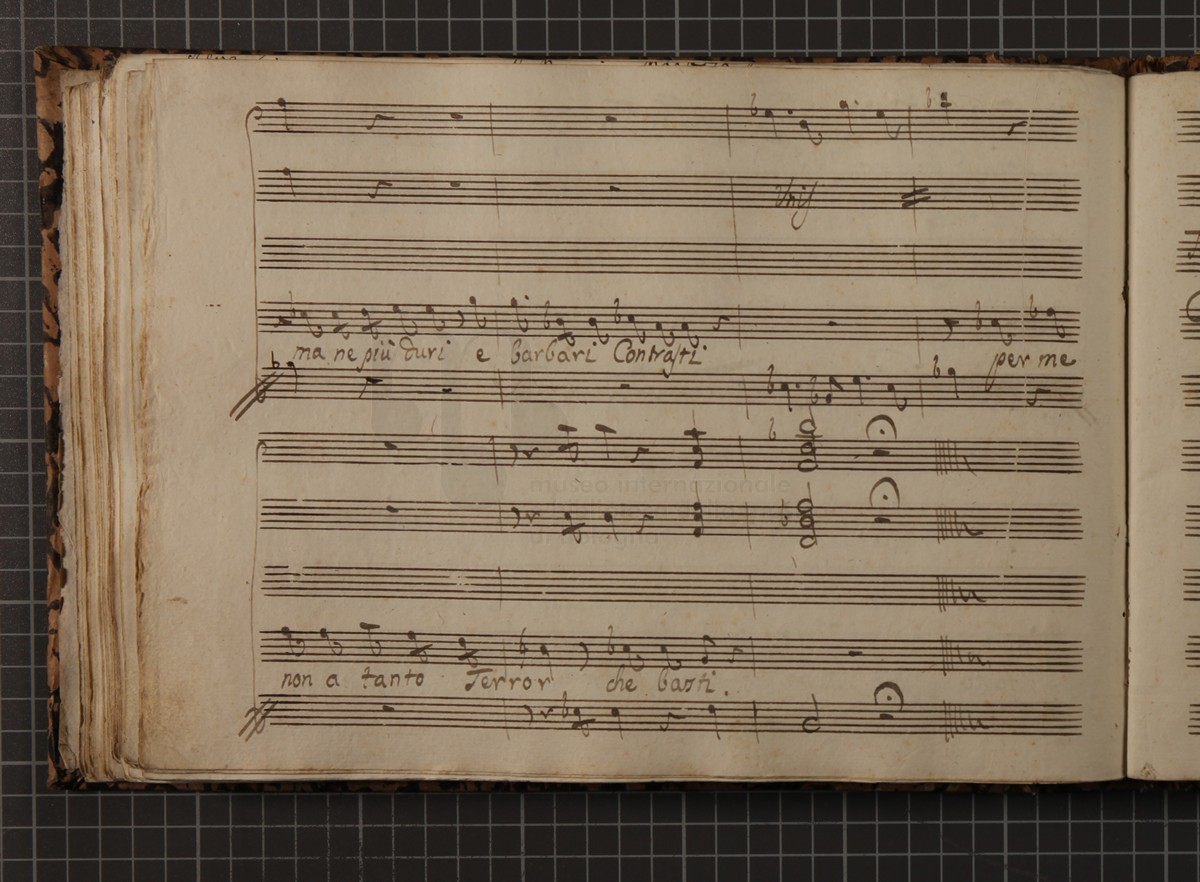 Unis
ma ne più duri e barbari Contrasti
per me
museo internazionale
non a tanto Terror che basti.